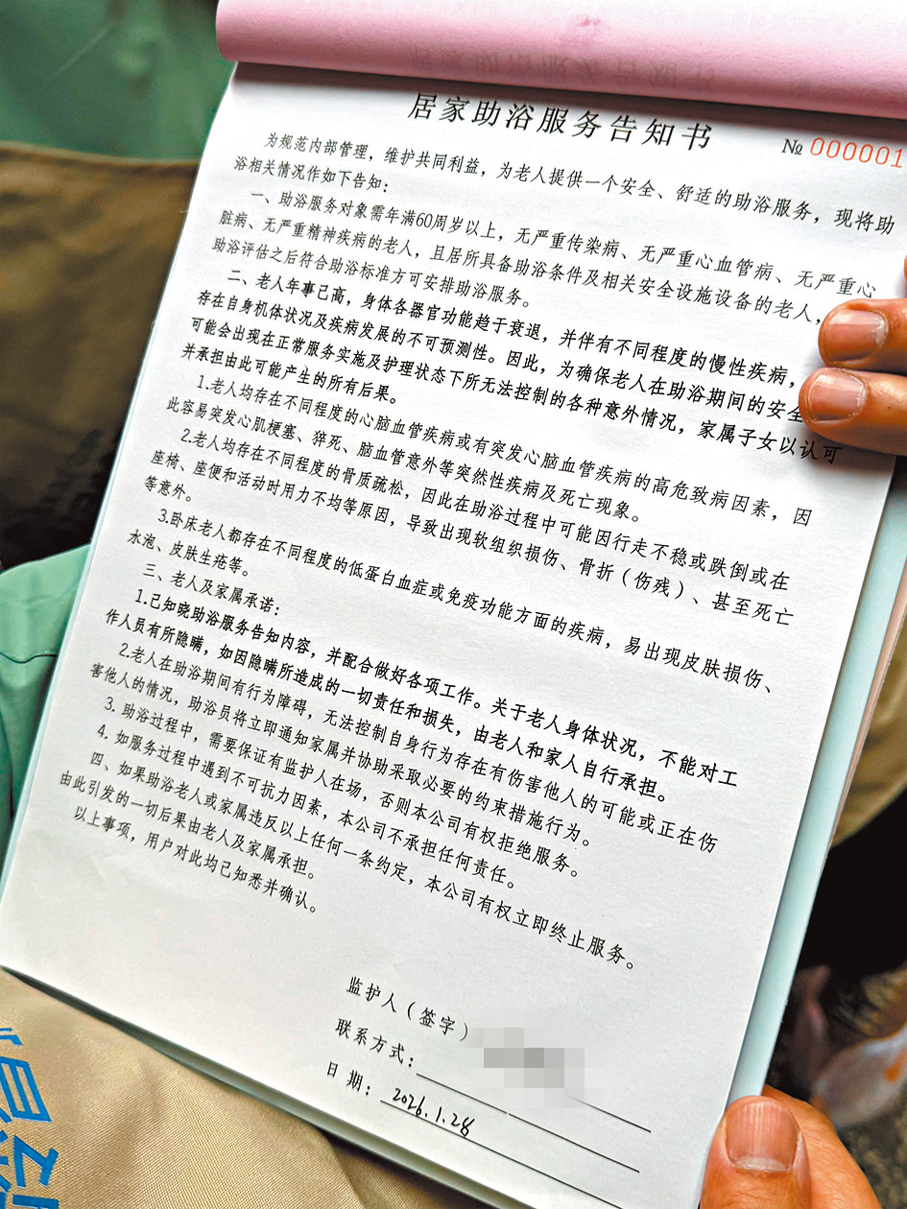 居家助浴服务告知书
№ 000001
为规范内部管理，维护共同利益，为老人提供一个安全、舒适的助浴服务，现将助
浴相关情况作如下告知：
一、助浴服务对象需年满60周岁以上，无严重传染病、无严重心血管病、无严重心
脏病、无严重精神疾病的老人，且居所具备助浴条件及相关安全设施设备的老人，
助浴评估之后符合助浴标准方可安排助浴服务。
二、老人年事已高，身体各器官功能趋于衰退，并伴有不同程度的慢性疾病，
存在自身机体状况及疾病发展的不可预测性。因此，为确保老人在助浴期间的安全
可能会出现在正常服务实施及护理状态下所无法控制的各种意外情况，家属子女以认可
并承担由此可能产生的所有后果。
1.老人均存在不同程度的心脑血管疾病或有突发心脑血管疾病的高危致病因素，因
此容易突发心肌梗塞、猝死、脑血管意外等突然性疾病及死亡现象。
2.老人均存在不同程度的骨质疏松，因此在助浴过程中可能因行走不稳或跌倒或在
座椅、座便和活动时用力不均等原因，导致出现软组织损伤、骨折（伤残）、甚至死亡
等意外。
3.卧床老人都存在不同程度的低蛋白血症或免疫功能方面的疾病，易出现皮肤损伤、
水泡、皮肤生疮等。
三、老人及家属承诺：
1.已知晓助浴服务告知内容，并配合做好各项工作。关于老人身体状况，不能对工
作人员有所隐瞒，如因隐瞒所造成的一切责任和损失，由老人和家人自行承担。
2.老人在助浴期间有行为障碍，无法控制自身行为存在有伤害他人的可能或正在伤
害他人的情况，助浴员将立即通知家属并协助采取必要的约束措施行为。
3. 助浴过程中，需要保证有监护人在场，否则本公司有权拒绝服务。
4. 如服务过程中遇到不可抗力因素，本公司不承担任何责任。
四、如果助浴老人或家属违反以上任何一条约定，本公司有权立即终止服务。
由此引发的一切后果由老人及家属承担。
以上事项，用户对此均已知悉并确认。
监护人（签字）
联系方式：
日 期：2026.1.28